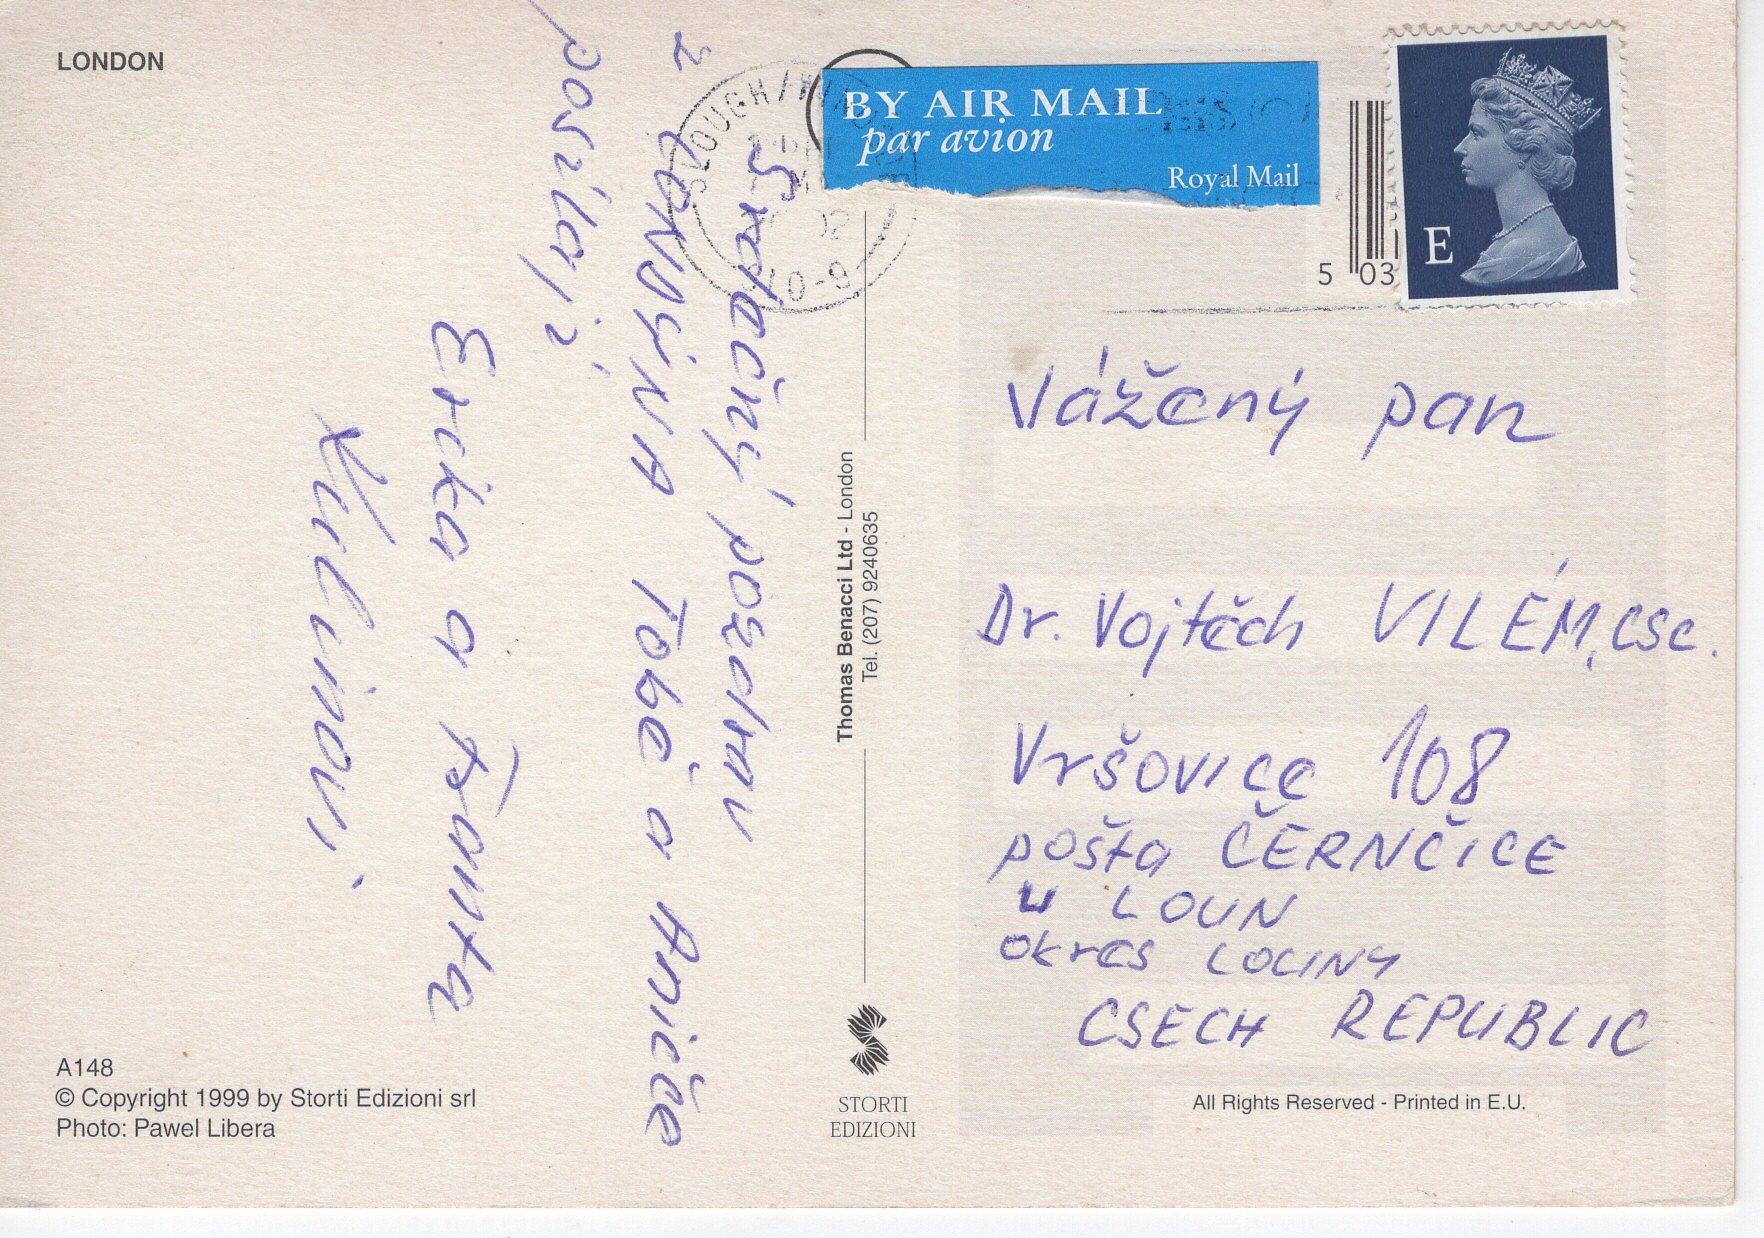 LONDON
Srdečný pozdrav
z LONDÝNA Tobě a Aničce
posílají
Erika a Franta
A148
© Copyright 1999 by Storti Edizioni srl
Photo: Pawel Libera
Thomas Benacci Ltd - London
Tel. (207) 9240635
STORTI
EDIZIONI
SLOUGH/
BY AIR MAIL
par avion
Royal Mail
5 03
E
Vážený pan
Dr. Vojtěch VILÉM, CSc.
Vršovice 108
pošta ČERNČICE
u LOUN
okres LOUNY
CSECH REPUBLIC
All Rights Reserved - Printed in E.U.